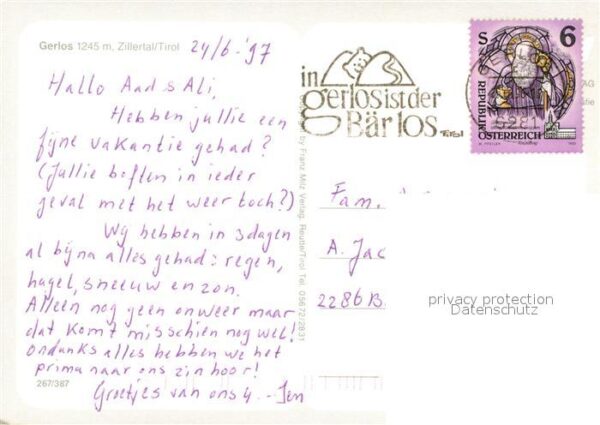 Gerlos 1245 m, Zillertal/Tirol
24/6-'97
Hallo Aad & Ali,
Hebben jullie een
fijne vakantie gehad?
(Jullie boften in ieder
geval met het weer toch?)
Wij hebben in 3 dagen
al bijna alles gehad: regen,
hagel, sneeuw en zon.
Alleen nog geen onweer maar
dat komt misschien nog wel!
Ondanks alles hebben we het
prima naar ons zin hoor!
Groetjes van ons 4
267/387
by Franz Milz Verlag, Reutte/Tirol Tel. 05672/2831
in
gerlos ist der
Bär los
Tirol
S 6
REPUBLIK
ÖSTERREICH
Fam.
A. Jac
2286 B
privacy protection
Datenschutz